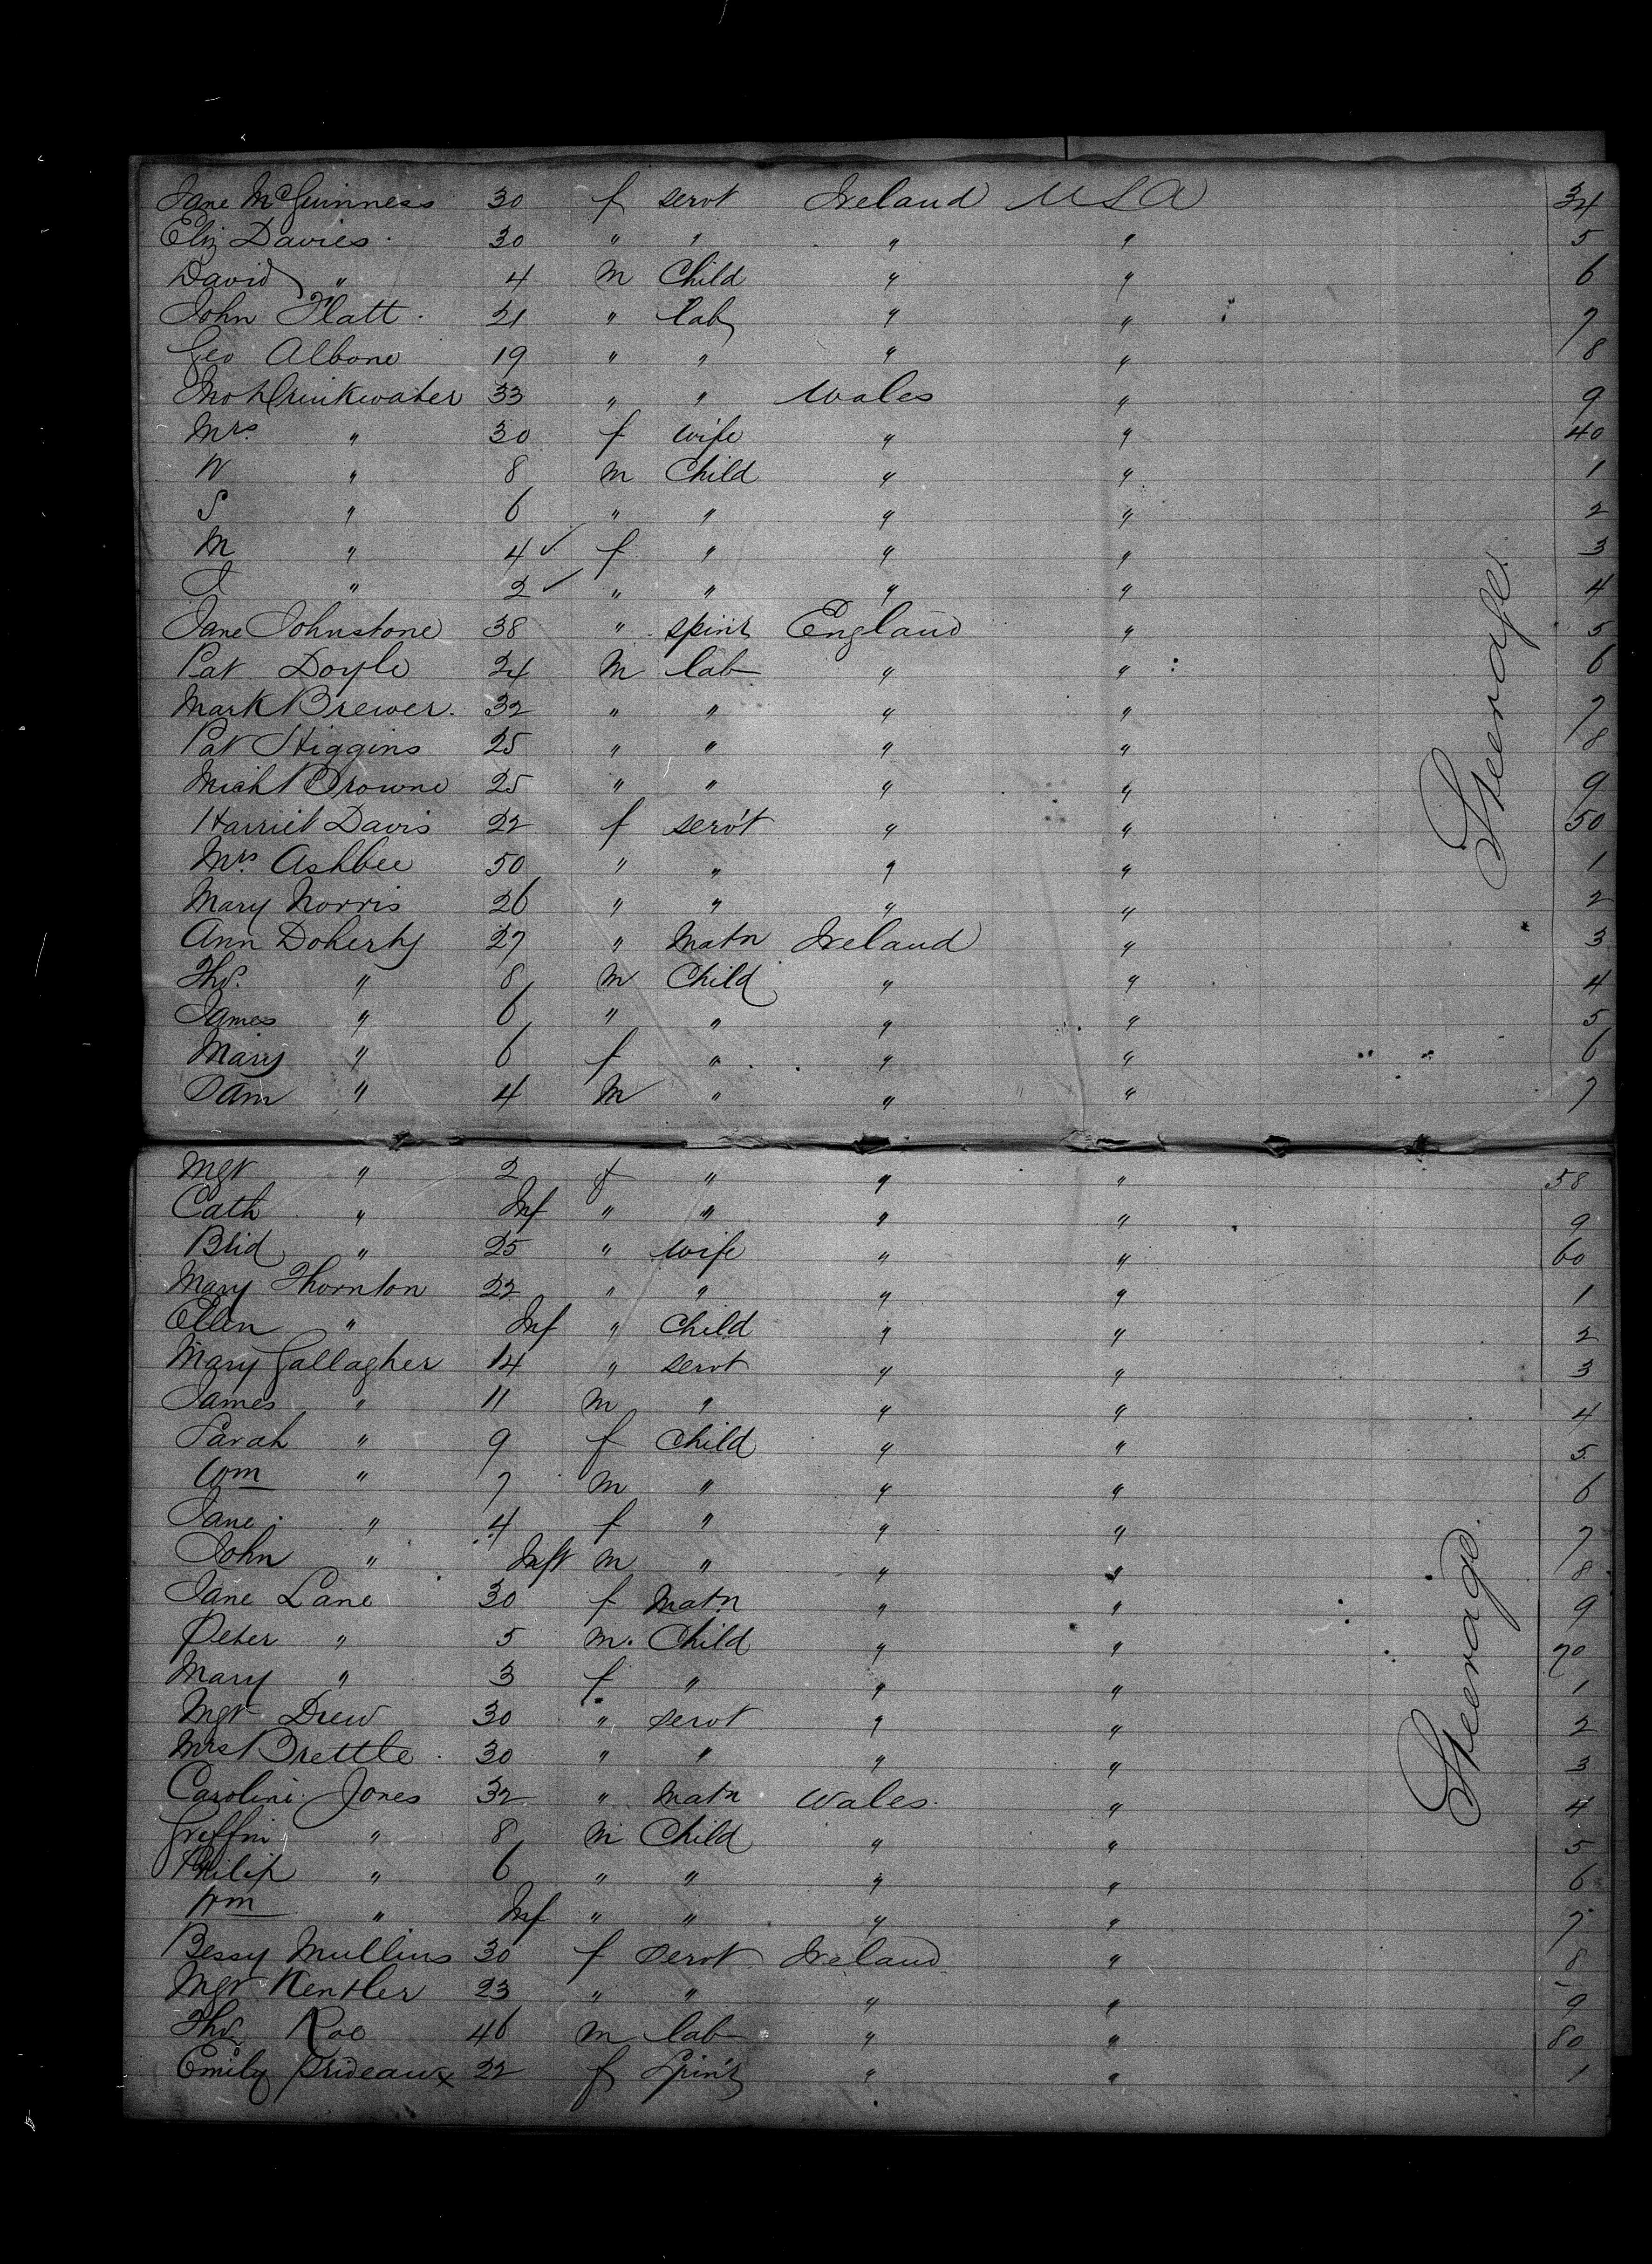 Jane McGuinness 30 f servt Ireland USA 34
Eliz Davies 30 " " " " 5
David " 4 m Child " " 6
John Flatt 21 " lab " " 7
Geo Albone 19 " " " " 8
Jno Drinkwater 33 " " Wales " 9
Mrs " 30 f wife " " 40
W " 8 m Child " " 1
S " 6 " " " " 2
M " 4 ✓ f " " " 3
" 2 ✓ " " " " 4
Jane Johnstone 38 " spinr England " 5
Pat Doyle 24 m lab " " 6
Mark Brewer 32 " " " " 7
Pat Higgins 25 " " " " 8
Michl Browne 25 " " " " 9
Harriet Davis 22 f serv't " " 50
Mrs Ashbee 50 " " " " 1
Mary Norris 26 " " " " 2
Ann Doherty 27 " Matn Ireland " 3
Thos " 8 m Child " " 4
James " 6 " " " " 5
Mary " 6 f " " " 6
Sam " 4 m " " " 7
Steerage
Mgt " 2 f " " " 58
Cath " Inf " " " " 9
Brid " 25 " wife " " 60
Mary Thornton 22 " " " " 1
Ellen " Inf " Child " " 2
Mary Gallagher 14 " servt " " 3
James " 11 m " " " 4
Sarah " 9 f Child " " 5
Wm " 7 m " " " 6
Jane " 4 f " " " 7
John " Inft m " " " 8
Jane Lane 30 f Matn " " 9
Peter " 5 m. Child " " 70
Mary " 3 f " " " 1
Mgt Drew 30 " servt " " 2
Mrs Brettle 30 " " " " 3
Caroline Jones 32 " Matn Wales " 4
Griffin " 8 m Child " " 5
Philip " 6 " " " " 6
Wm " Inf " " " " 7
Bessy Mullins 30 f servt Ireland " 8
Mgt Kentler 23 " " " " 9
Thos Roe 46 m lab " " 80
Emily Prideaux 22 f Spin'r " " 1
Steerage